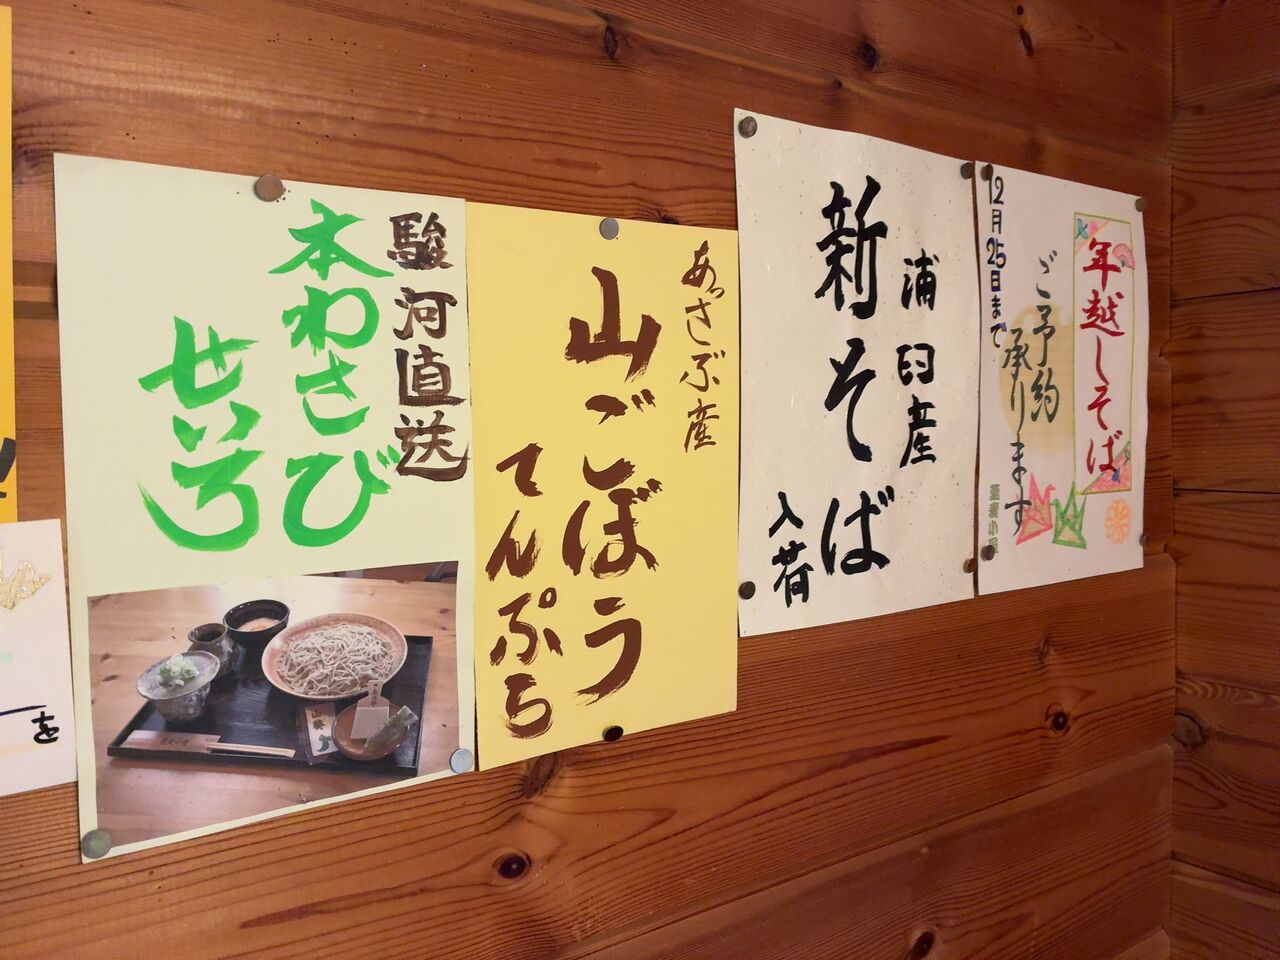 年越しそば
ご予約
承ります
12月25日まで
蕎麦小屋
浦臼産
新そば
入荷
あっさぶ産
山ごぼう
てんぷら
駿河直送
本わさび
せいろ
を